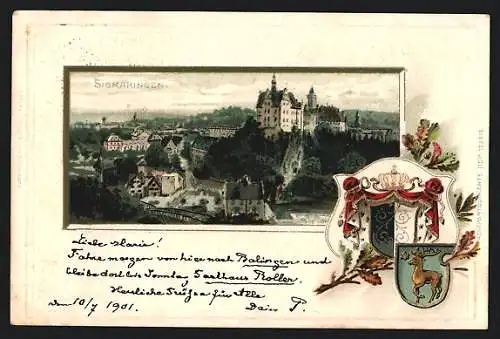 SIGMARINGEN.
Liebe Marie!
Fahre morgen von hier nach Balingen und
bleibe dort bis Sonntag Gasthaus Roller.
Herzliche Grüsse für Alle
den 10/7 1901. Dein P.